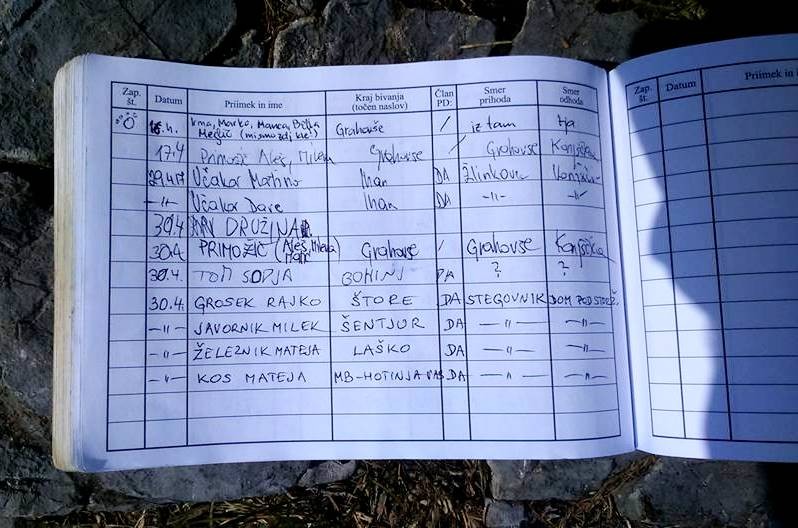 Zap. št. Datum Priimek in ime Kraj bivanja (točen naslov) Član PD: Smer prihoda Smer odhoda
Irma, Marko, Manca,
(mismo zdi kle!) Grahovše / iz tam tja
17.4 Primožič Aleš, Milena Grahovše / Grahovše Konjščica
29.4.17 Učakar Ihan DA
-"- Učakar Dare Ihan DA -"- -"-
30.4 DRUŽINA
30.4. PRIMOŽIČ (Aleš, Milena) Grahovše / Grahovše Konjščica
30.4. TOM SODJA BOHINJ DA ? ?
30.4. GROSEK RAJKO ŠTORE DA STEGOVNIK DOM POD STORŽ.
-"- JAVORNIK MILEK ŠENTJUR DA -"- -"-
-"- ŽELEZNIK MATEJA LAŠKO DA -"- -"-
-"- KOS MATEJA MB-HOTINJA VAS DA -"- -"-
Zap. št. Datum Priimek in